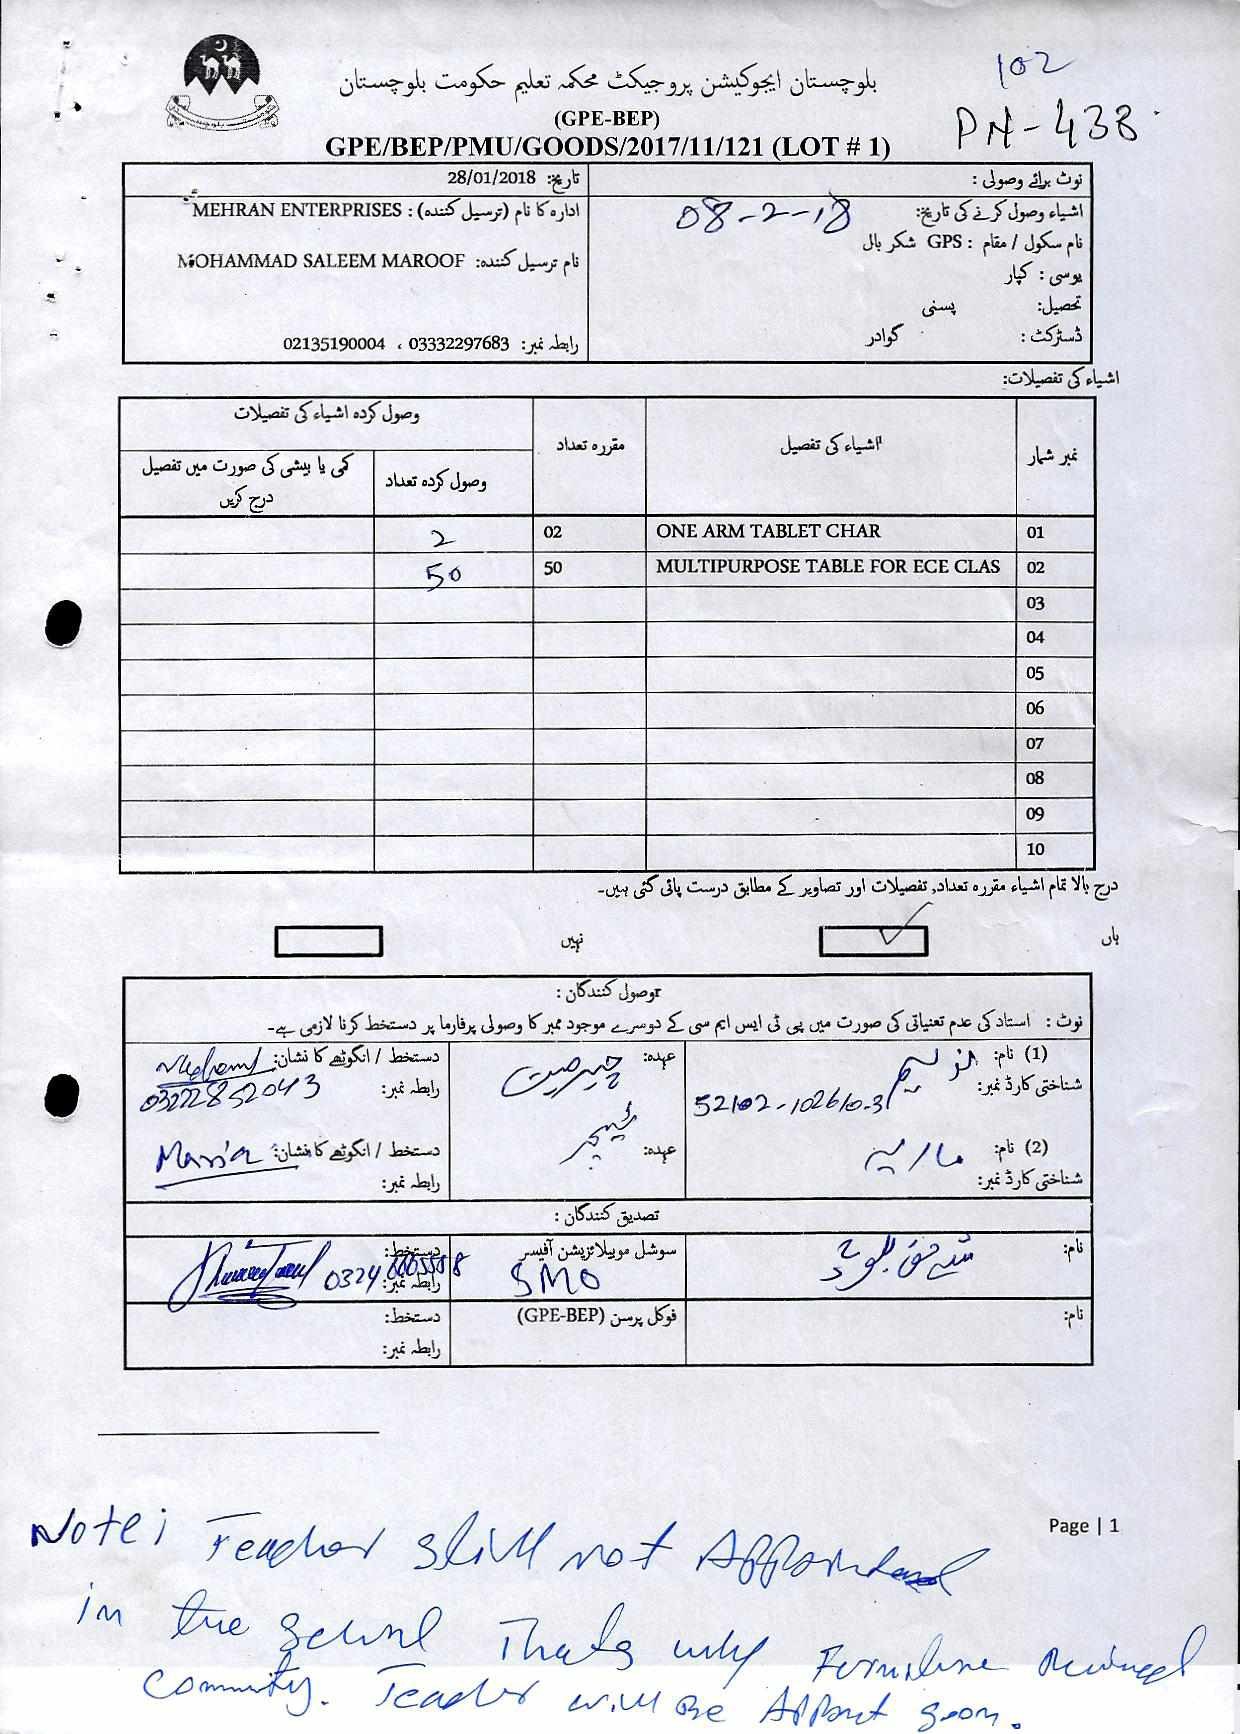 102
PN-438
بلوچستان ایجوکیشن پروجیکٹ محکمہ تعلیم حکومت بلوچستان
(GPE-BEP)
GPE/BEP/PMU/GOODS/2017/11/121 (LOT # 1)
نوٹ برائے وصولی :
اشیاء وصول کرنے کی تاریخ: 08-2-18
نام سکول / مقام : GPS شکر بال
یوسی : کپار
تحصیل: پسنی
ڈسٹرکٹ : گوادر
تاریخ: 28/01/2018
ادارہ کا نام (ترسیل کنندہ) : MEHRAN ENTERPRISES
نام ترسیل کنندہ: MOHAMMAD SALEEM MAROOF
رابطہ نمبر: 03332297683 ، 02135190004
اشیاء کی تفصیلات:
نمبر شمار اشیاء کی تفصیل مقررہ تعداد وصول کردہ اشیاء کی تفصیلات
وصول کردہ تعداد کمی یا بیشی کی صورت میں تفصیل
درج کریں
01 ONE ARM TABLET CHAR 02 2
02 MULTIPURPOSE TABLE FOR ECE CLAS 50 50
03
04
05
06
07
08
09
10
درج بالا تمام اشیاء مقررہ تعداد, تفصیلات اور تصاویر کے مطابق درست پائی گئی ہیں۔
ہاں ✓ نہیں
وصول کنندگان :
نوٹ : استاد کی عدم تعنیاتی کی صورت میں پی ٹی ایس ایم سی کے دوسرے موجود ممبر کا وصولی پرفارما پر دستخط کرنا لازمی ہے۔
(1) نام: عہدہ: دستخط / انگوٹھے کا نشان:
شناختی کارڈ نمبر: 52102-102610-3 رابطہ نمبر: 03222852043
(2) نام: ماریہ عہدہ: ٹیچر دستخط / انگوٹھے کا نشان: Maria
شناختی کارڈ نمبر: رابطہ نمبر:
تصدیق کنندگان :
نام: سوشل موبیلائزیشن آفیسر دستخط:
SMO رابطہ نمبر:
نام: فوکل پرسن (GPE-BEP) دستخط:
رابطہ نمبر:
Page | 1
Note: Teacher still not Appointed
in the school Thats why Furniture Received
Community. Teacher will be Appoint soon.